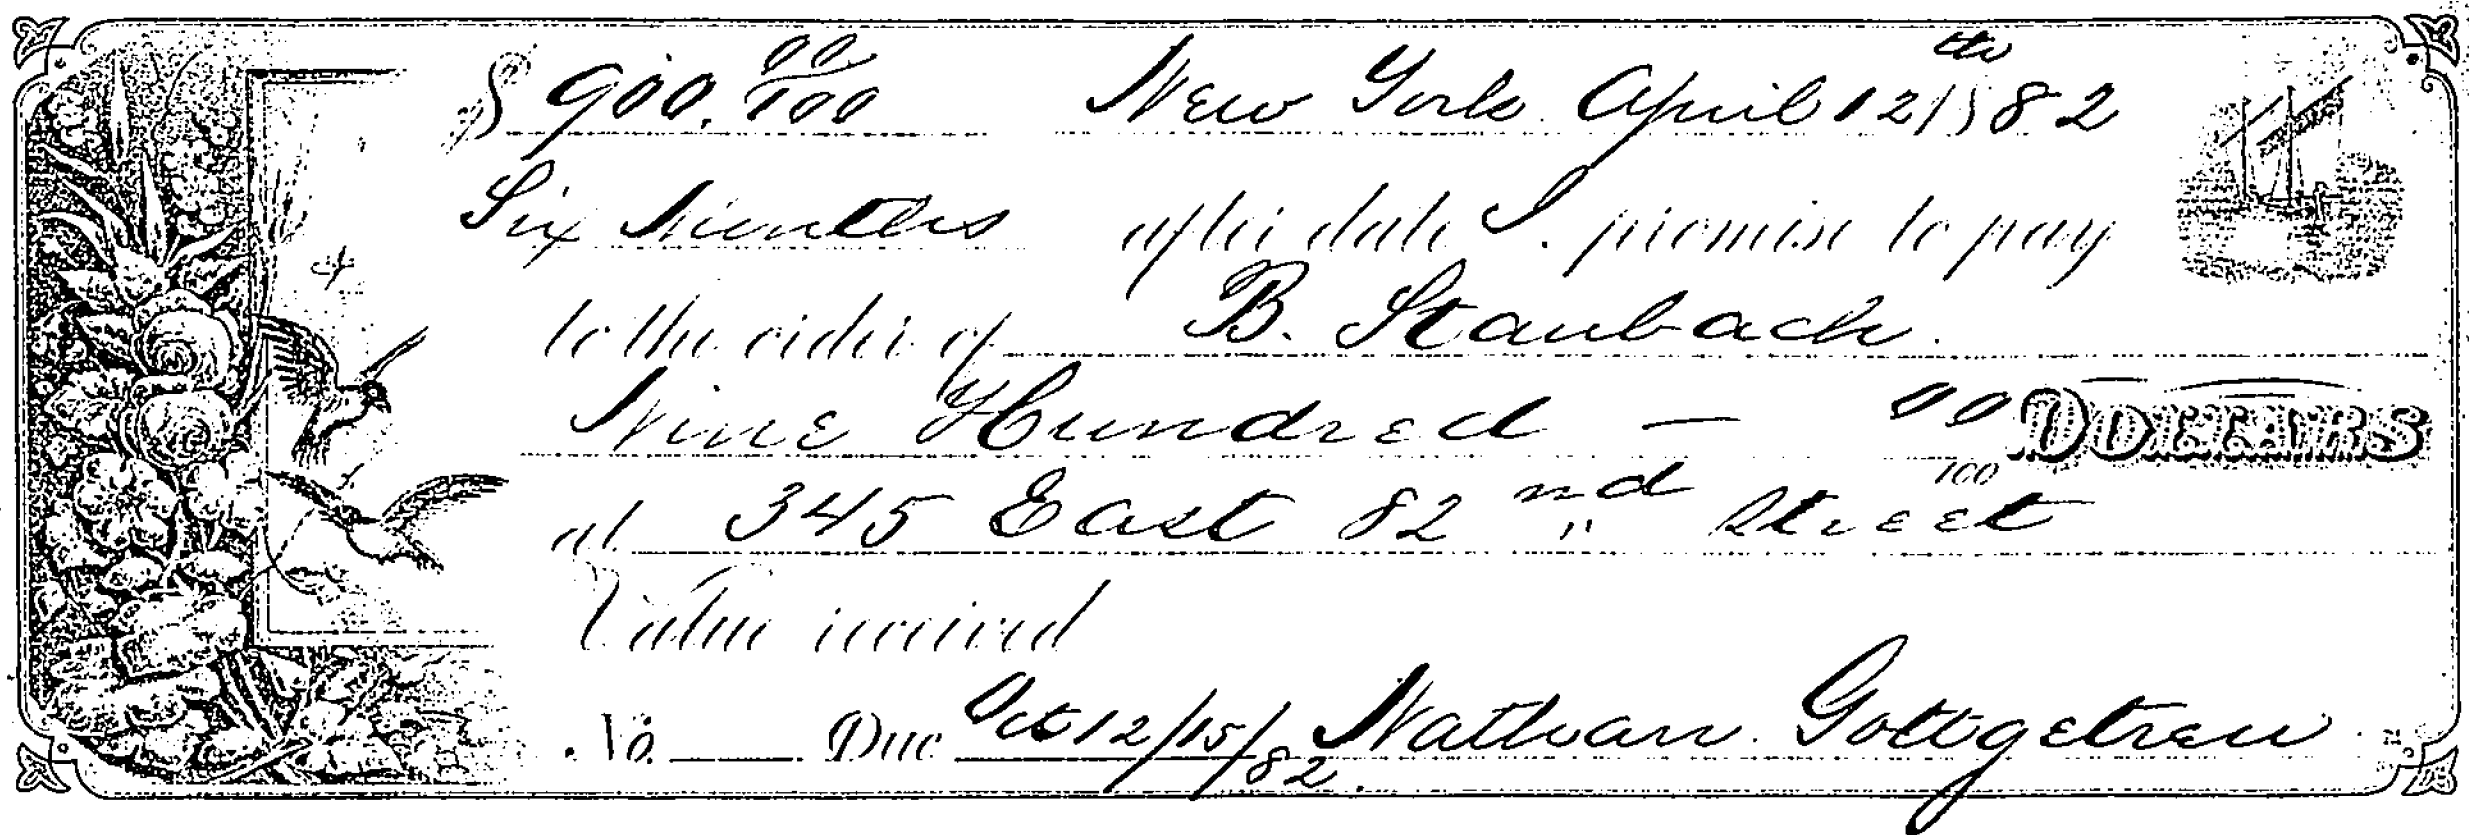 $ 900. 00/100 New York April 12th 1882
Six Months after date I promise to pay
to the order of B. Staubach.
Nine Hundred — 00/100 DOLLARS
at 345 East 82nd Street
Value received
No. Due Oct 12/15/82. Nathan Gottgetreu